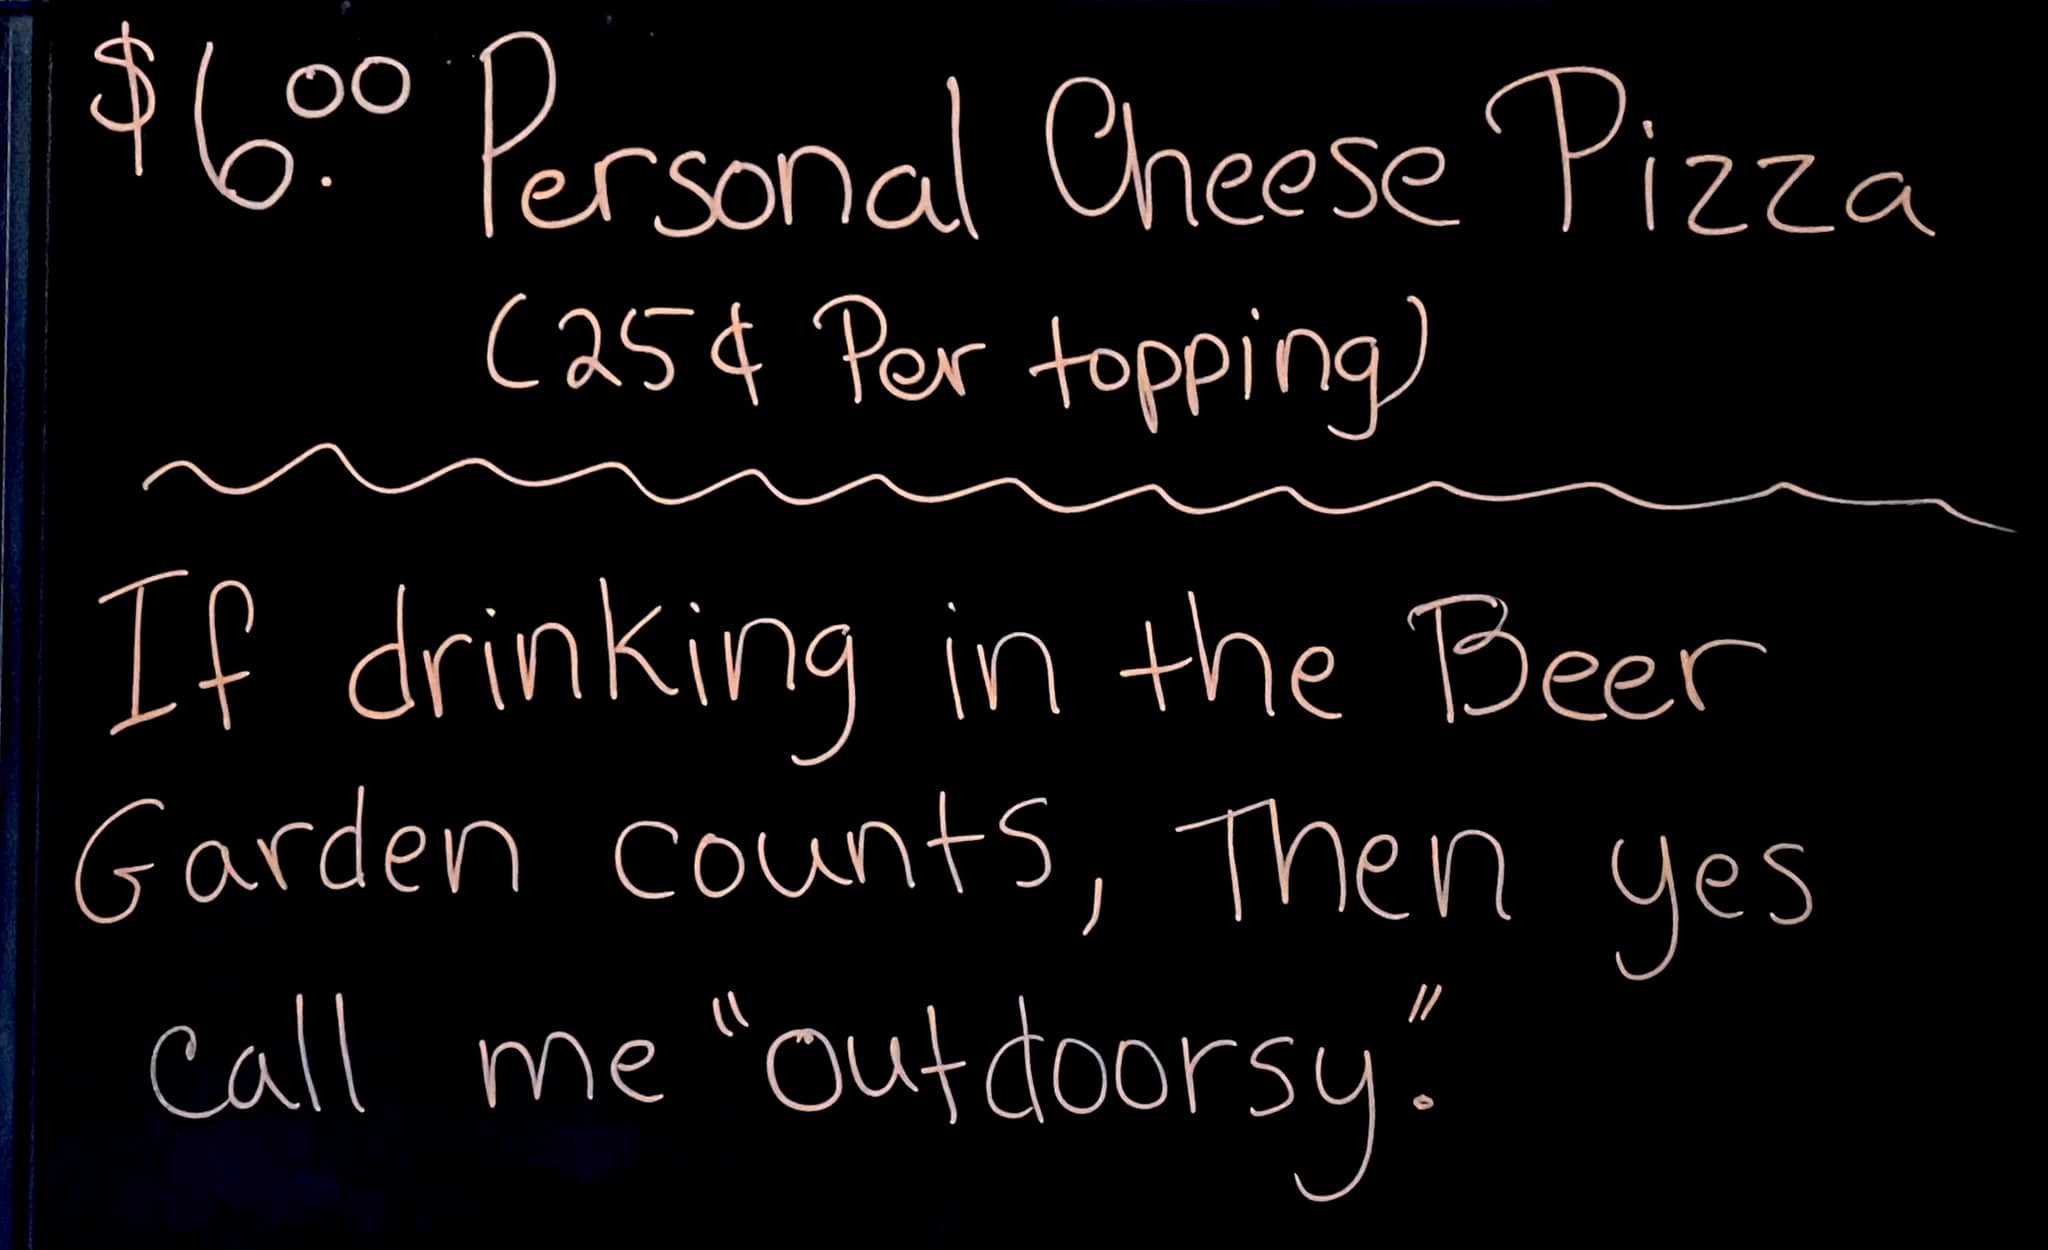 $6.00 Personal Cheese Pizza
(25¢ Per topping)
If drinking in the Beer
Garden counts, Then yes
call me "outdoorsy."